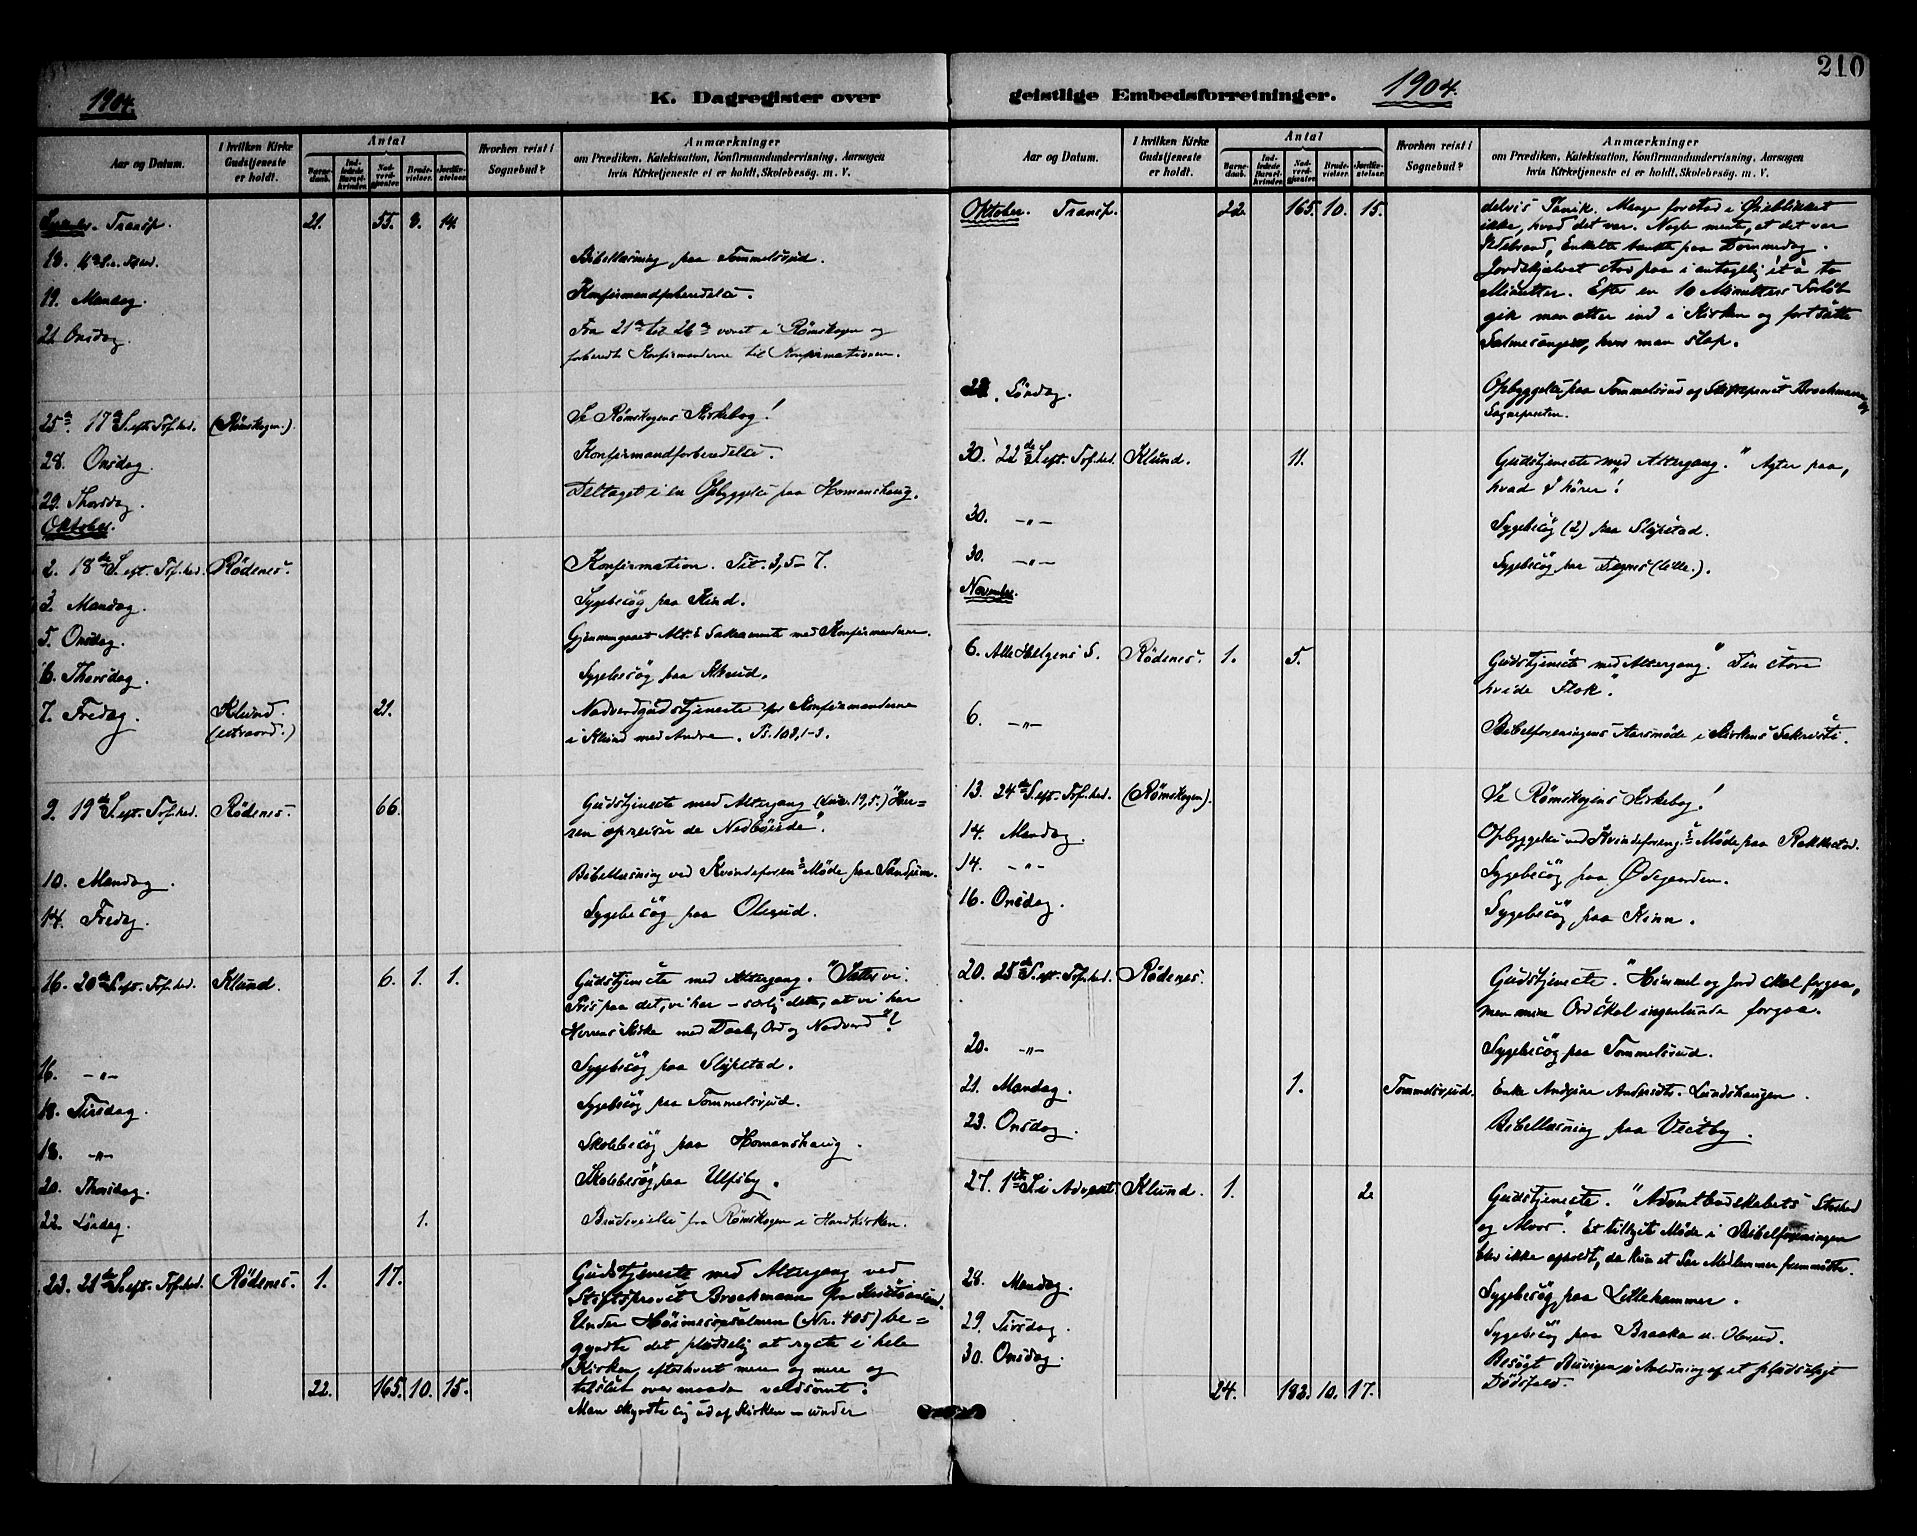 210
1904.
K. Dagregister over
geistlige Embedsforretninger.
1904.
Aar og Datum.
I hvilken Kirke
Gudstjeneste
er holdt.
Antal
Barne-
daab.
Ind-
ledede
Barsel-
kvinder.
Nad-
verd-
gjester.
Brude-
vielser.
Jordfæ-
stelser.
Hvorhen reist i
Sognebud?
Anmærkninger
om Prædiken, Katekisation, Konfirmandundervisning, Aarsagen
hvis Kirketjeneste ei er holdt, Skolebesøg. m. V.
Transp. 21. 55. 8. 14.
18. Bibellæsning paa Tommelsrud.
19. Mandag. Konfirmandforberedelse.
21 Onsdag. Fra 21de til 26de været i Rømskogen og
forberedt Konfirmanderne til Konfirmationen.
25de 17de S. eft. Tref.hed. (Rømskogen.) Se Rømskogens Kirkebog!
28. Onsdag. Konfirmandforberedelse.
29. Thorsdag. Deltaget i en Opbyggelse paa Homanshaug.
Oktober.
2. 18de S. eft. Tref.hed. Rødenes. Konfirmation. Tit. 3,5-7.
3. Mandag. Sygebesøg paa Kind.
5. Onsdag. Gjennemgaaet Alt. S Sakramente med Konfirmanderne.
6. Thorsdag. Sygebesøg paa
7. Fredag. Klund. 21. Nadverdgudstjeneste for Konfirmanderne
(extraord.) i Klund med Andre. Ps. 103,1-3.
9. 19de S. eft. Tref.hed. Rødenes. 66. Gudstjeneste med Altergang (Luc. 19,5.) "Her-
ren opreiser de Nedbøiede".
10. Mandag. Bibellæsning ved Kvindeforen.s Møde paa
14. Fredag. Sygebesøg paa Olsrud.
16. 20de S. eft. Tref.hed. Klund. 6. 1. 1. Gudstjeneste med Altergang. "Sætter vi
Pris paa det, vi har – særlig dette, at vi har
Herrens Kirke med Daab, Ord og Nadverd"?
16. –"– Sygebesøg paa Slupstad.
18. Tirsdag. Sygebesøg paa Tommelsrud.
18. –"– Skolebesøg paa Homanshaug.
20. Thorsdag. Skolebesøg paa Ulfsby.
22. Lördag. 1. Brudevielse fra Rømskogen i
23. 21de S. eft. Tref.hed. Rødenes. 1. 17. Gudstjeneste med Altergang ved
Stiftsprovst Brochmann fra Kristiansand.
Under Høimessepsalmen (Nr. 405) be-
gyndte det pludselig at ryste i hele
Kirken, efterhvert mere og mere og
tilslut overmaade voldsomt.
22. 165. 10. 15.
Man skyndte sig ud af Kirken – under
Aar og Datum.
I hvilken Kirke
Gudstjeneste
er holdt.
Antal
Barne-
daab.
Ind-
ledede
Barsel-
kvinder.
Nad-
verd-
gjester.
Brude-
vielser.
Jordfæ-
stelser.
Hvorhen reist i
Sognebud?
Anmærkninger
om Prædiken, Katekisation, Konfirmandundervisning, Aarsagen
hvis Kirketjeneste ei er holdt, Skolebesøg. m. V.
Oktober. Transp. 22 165. 10. 15. delvis Panik. Mange forstod i Øieblikket
ikke, hvad det var. Nogle mente, at det var
Ildebrand, Enkelte tænkte paa Dommedag.
Jordskjælvet stod paa i antagelig 1 à to
Minutter. Efter en 10 Minutters Forløb
gik man atter ind i Kirken og fortsatte
Salmesangen, hvor man slap.
22. Lördag. Opbyggelse paa Tommelsrud af Stiftsprovst Brochmann og
Sognepresten.
30. 22de S. eft. Tref.hed. Klund. 11. Gudstjeneste med Altergang. "Agter paa,
hvad I hører"!
30. –"– Sygebesøg (2) paa Slupstad.
30. –"– Sygebesøg paa (lille.).
November.
6. Alle Helgens S. Rødenes. 1. 5. Gudstjeneste med Altergang. "Den store
hvide Flok".
6. –"– Bibelforeningens Aarsmøde i Kirkens Sakristi.
13. 24de S. eft. Tref.hed. (Rømskogen). Se Rømskogens Kirkebog!
14. Mandag. Opbyggelse ved Kvindeforeng.s Møde paa Rakkestad.
14. –"– Sygebesøg paa Ødegaarden.
16. Onsdag. Sygebesøg paa Kinn.
20. 25de S. eft. Tref.hed. Rødenes. Gudstjeneste. "Himmel og Jord skal forgaa,
men mine Ord skal ingenlunde forgaa.
20. –"– Sygebesøg paa Tommelsrud.
21. Mandag. 1. Tommelsrud. Enke Andrine Andersdtr. Lundshaugen.
23. Onsdag. Bibellæsning paa Vestby.
27. 1ste S. i Advent. Klund. 1. 2 Gudstjeneste. "Adventbudskabets Storhed
og Alvor". Et tillyst Møde i Bibelforeningen
blev ikke afholdt, da kun et Par Medlemmer fremmødte.
28. Mandag. Sygebesøg paa Lillehammer.
29. Tirsdag. Sygebesøg paa Braaka o. Olsrud.
30. Onsdag. Besøgt i Anledning af et pludseligt
Dødsfald.
24. 182. 10. 17.